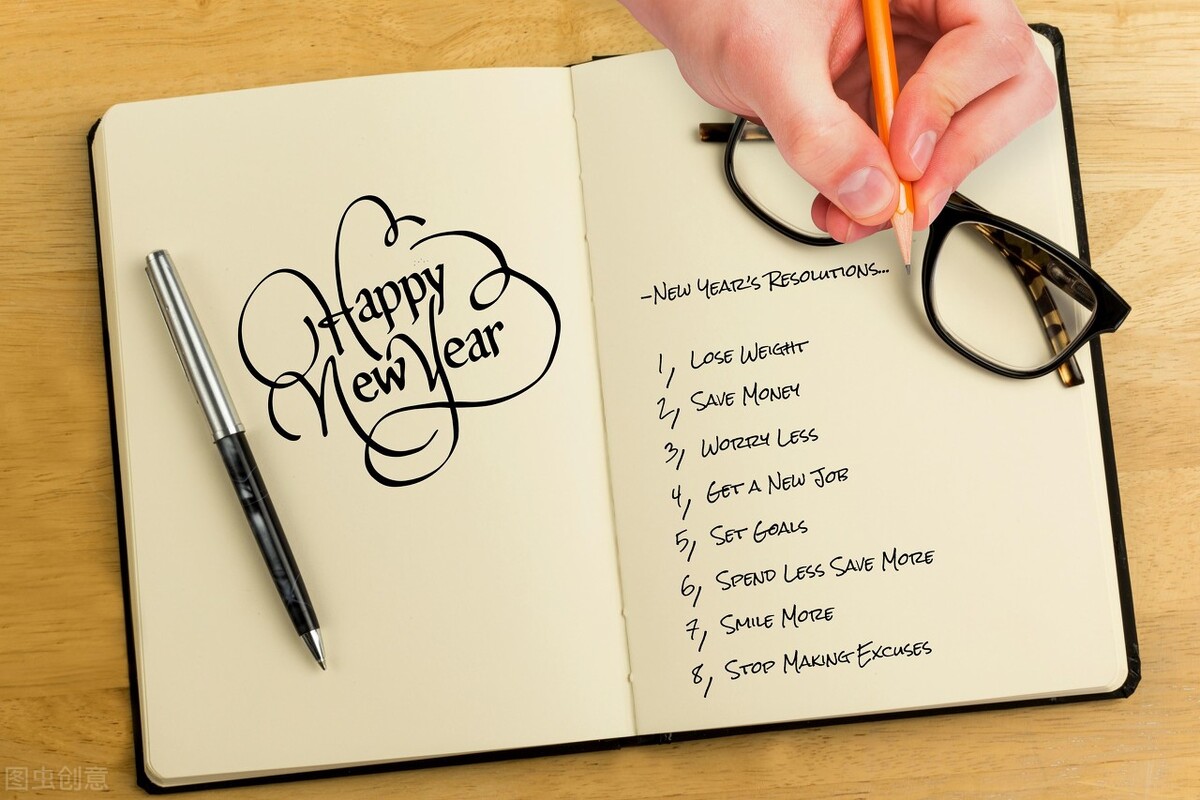 Happy
New Year
-New Year's Resolutions...
1, Lose Weight
2, Save Money
3, Worry Less
4, Get a New Job
5, Set Goals
6, Spend Less Save More
7, Smile More
8, Stop Making Excuses
图虫创意